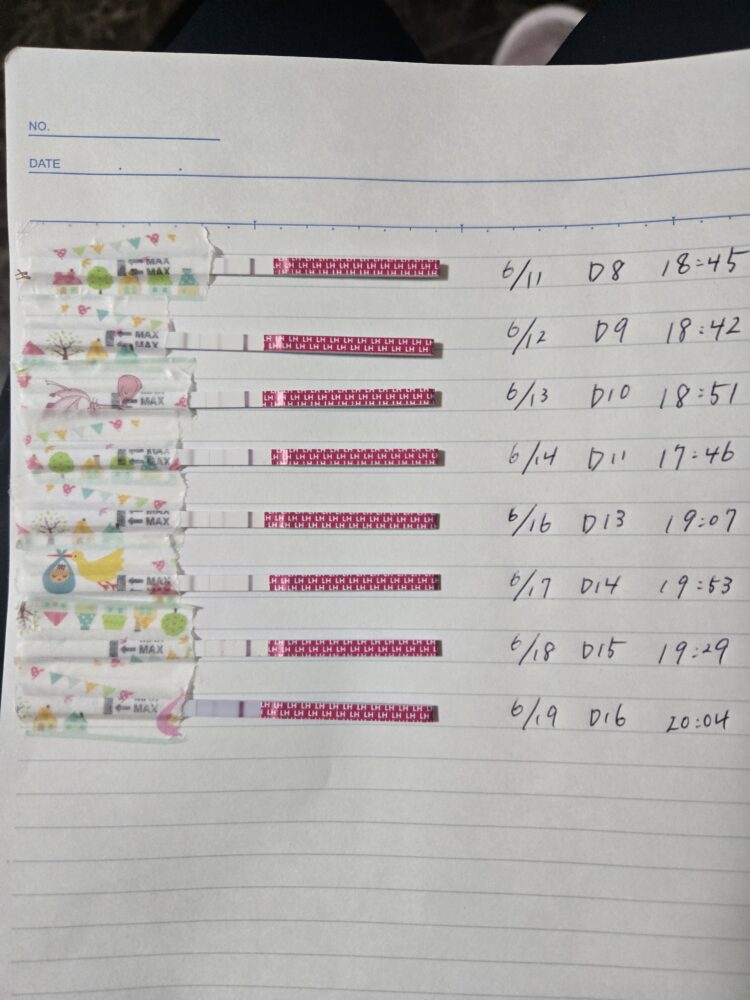 NO.
DATE
MAX
MAX
LH LH LH LH LH LH LH LH LH LH LH
LH LH LH LH LH LH LH LH LH LH LH
6/11 D8 18:45
MAX
MAX
LH LH LH LH LH LH LH LH LH LH LH
LH LH LH LH LH LH LH LH LH LH LH
6/12 D9 18:42
MAX
LH LH LH LH LH LH LH LH LH LH LH
6/13 D10 18:51
MAX
MAX
LH LH LH LH LH LH LH LH LH LH LH
6/14 D11 17:46
MAX
MAX
LH LH LH LH LH LH LH LH LH LH LH
6/16 D13 19:07
MAX
LH LH LH LH LH LH LH LH LH LH LH
6/17 D14 19:53
MAX
LH LH LH LH LH LH LH LH LH LH LH
6/18 D15 19:29
MAX
LH LH LH LH LH LH LH LH LH LH LH
6/19 D16 20:04